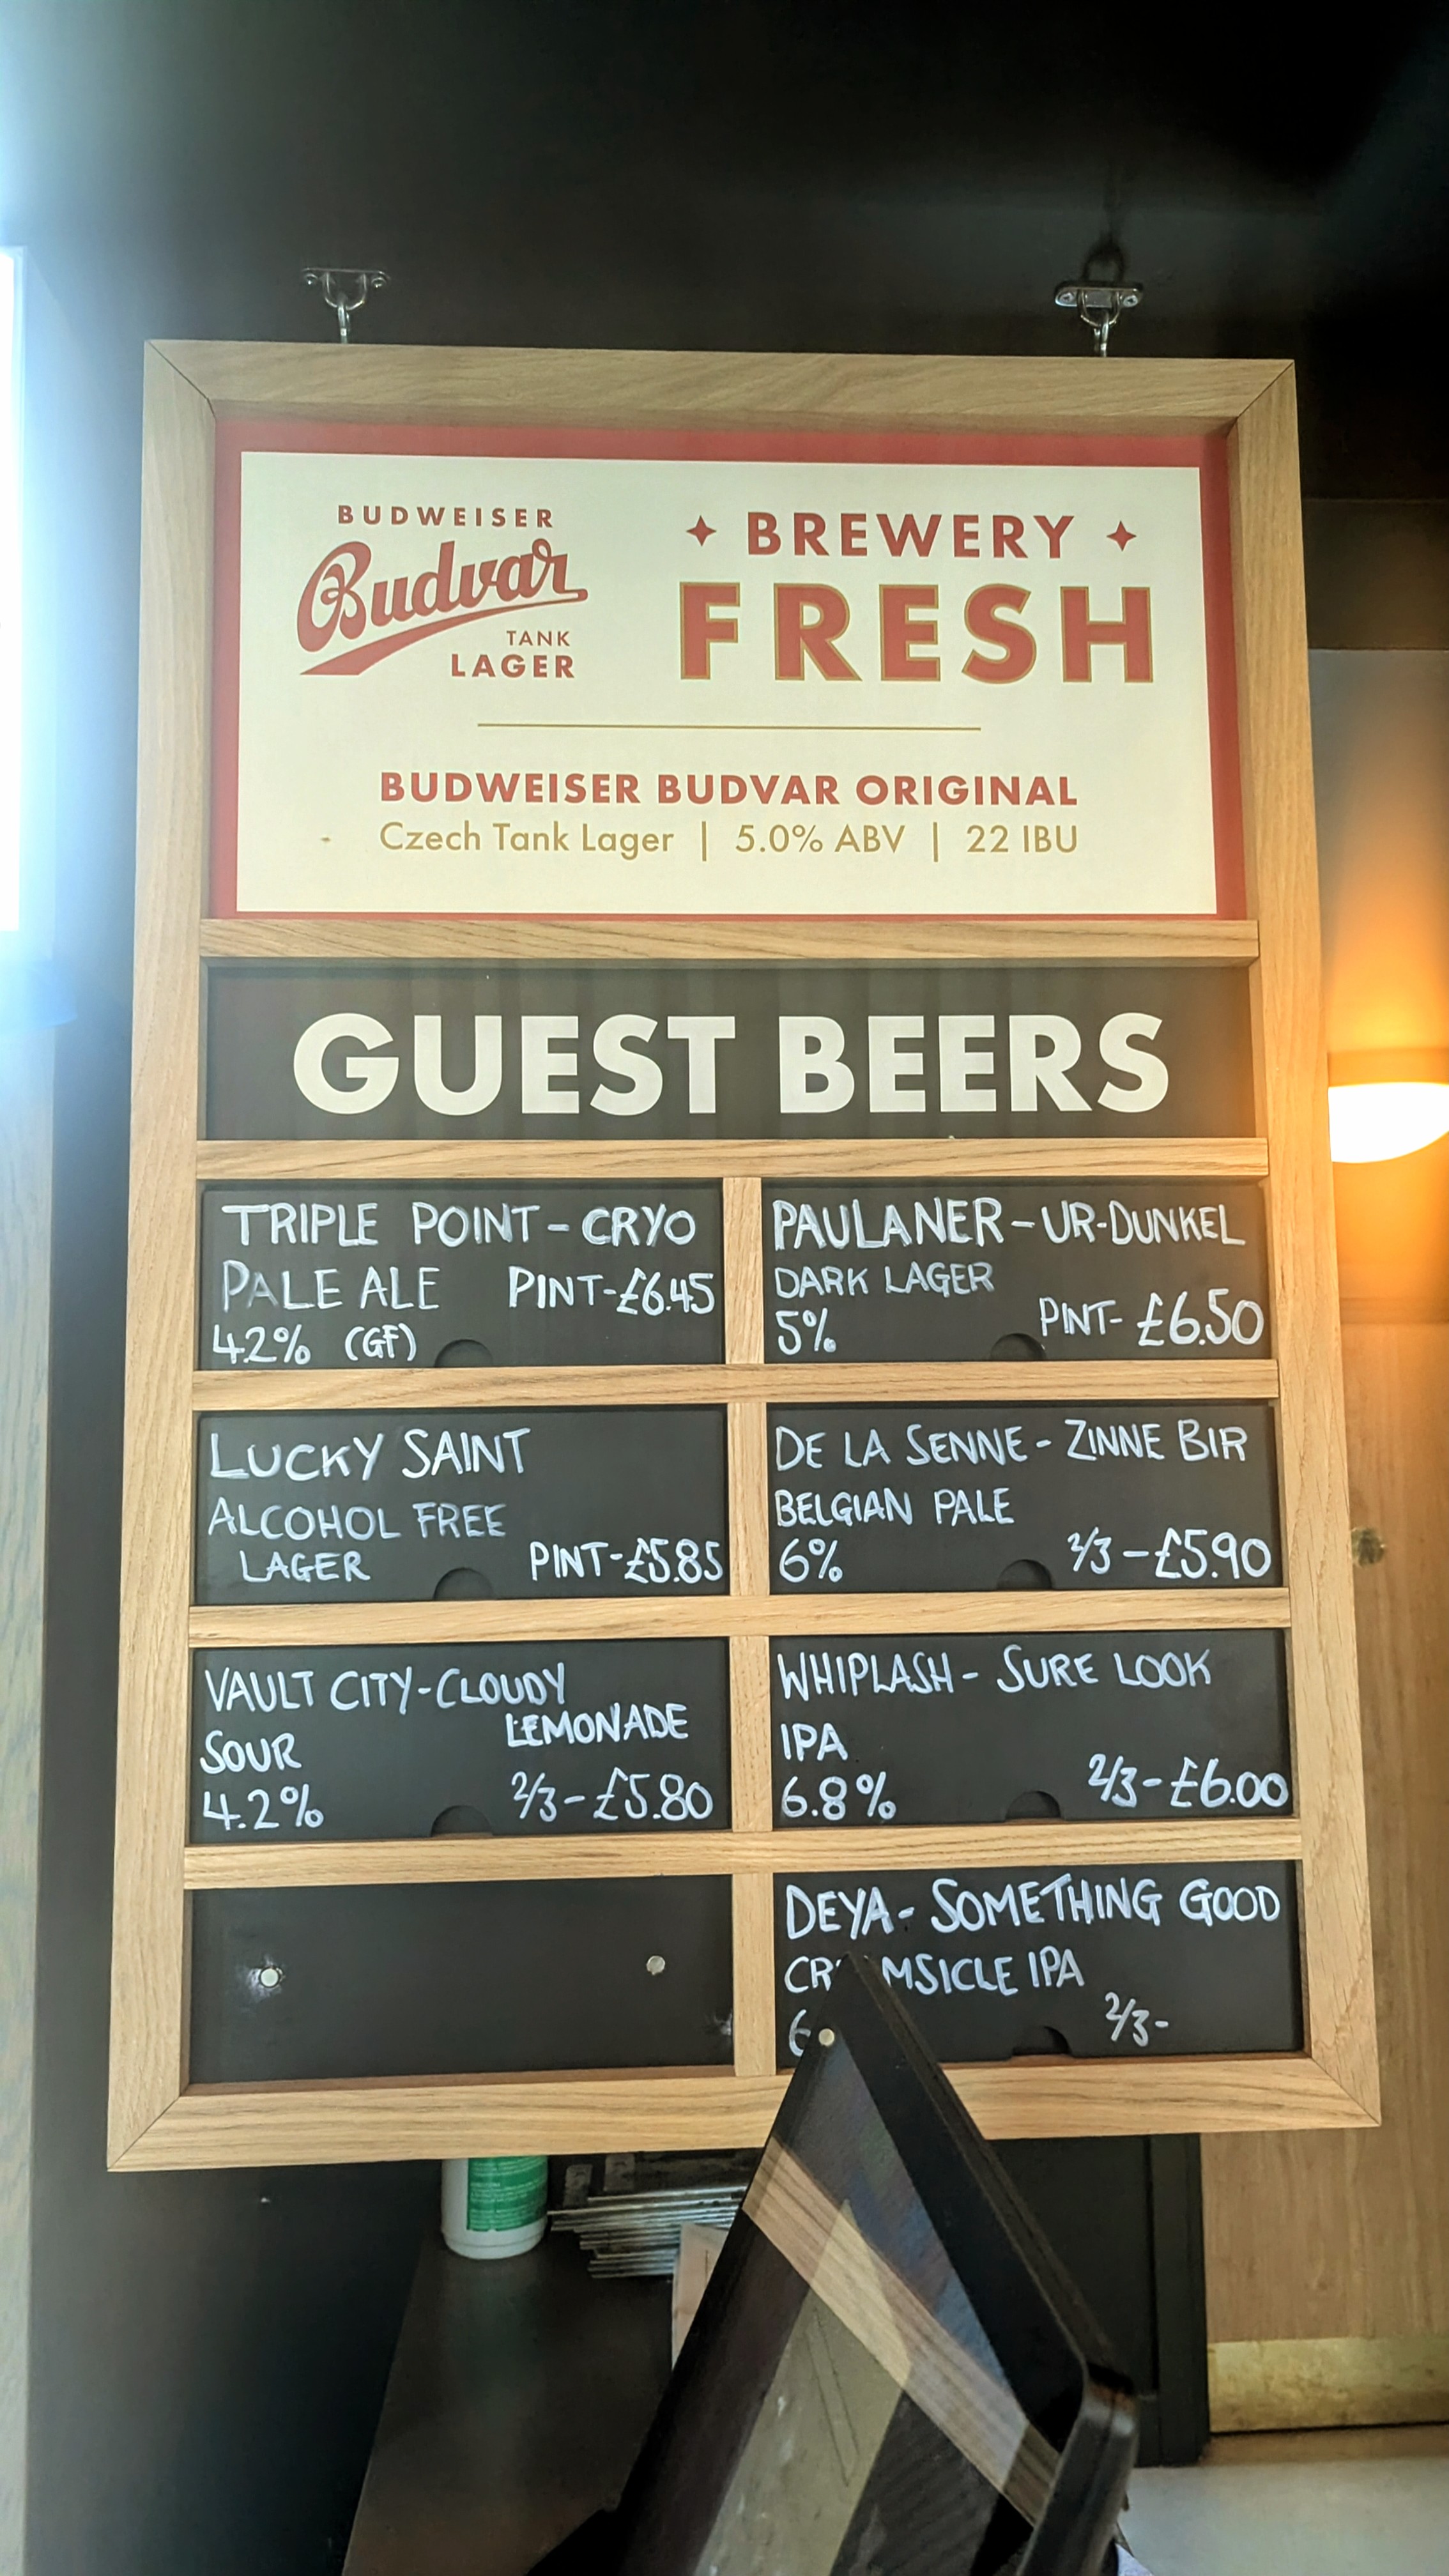 BUDWEISER
Budvar
TANK
LAGER
BREWERY
FRESH
BUDWEISER BUDVAR ORIGINAL
Czech Tank Lager | 5.0% ABV | 22 IBU
GUEST BEERS
TRIPLE POINT - CRYO
PALE ALE PINT-£6.45
4.2% (GF)
PAULANER - UR-DUNKEL
DARK LAGER
5% PINT- £6.50
LUCKY SAINT
ALCOHOL FREE
LAGER PINT-£5.85
DE LA SENNE - ZINNE BIR
BELGIAN PALE
6% 2/3 - £5.90
VAULT CITY - CLOUDY
LEMONADE
SOUR
4.2% 2/3 - £5.80
WHIPLASH - SURE LOOK
IPA
6.8% 2/3 - £6.00
DEYA - SOMETHING GOOD
IPA
2/3-